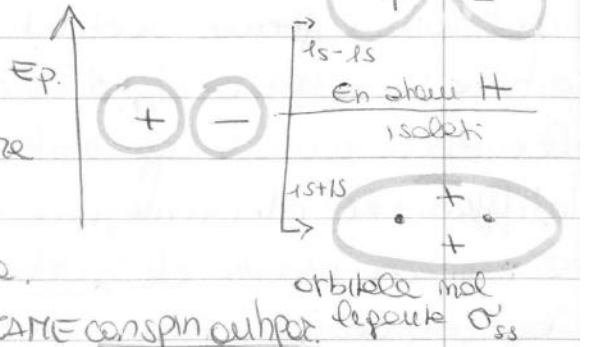 + −
1s-1s
Ep.
En atomi H
+ −
isolati
1s+1s
+
+
orbitale mol
legante σss
LAME con spin antipar.